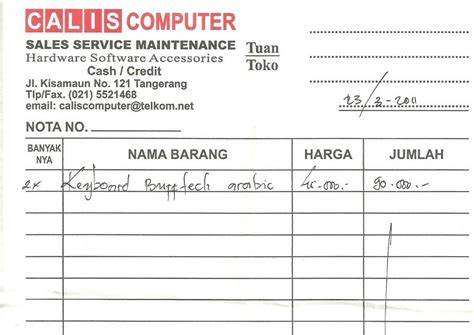 CALIS COMPUTER
SALES SERVICE MAINTENANCE
Hardware Software Accessories
Cash / Credit
Jl. Kisamaun No. 121 Tangerang
Tlp/Fax. (021) 5521468
email: caliscomputer@telkom.net
Tuan
Toko
23/2-2011
NOTA NO.
BANYAK NYA NAMA BARANG HARGA JUMLAH
2x Keyboard arabic 90.000.-